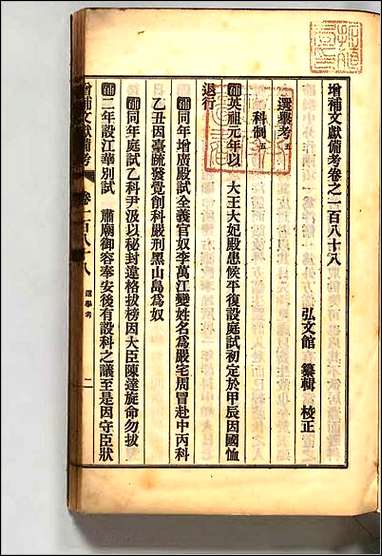 增補文獻備考卷之一百八十八
弘文館 纂輯 校正
選擧考五
科制五
補英祖元年以 大王大妃殿患候平復設庭試初定於甲辰因國恤
退行
補同年增廣殿試全義官奴李萬江變姓名爲嚴宅周冒赴中丙科
乙丑因臺疏發覺削科嚴刑黑山島爲奴
補同年庭試乙科尹汲以秘封違格拔榜因大臣陳達旋命勿拔
補二年設江華別試 肅廟御容奉安後有設科之議至是因守臣狀
增補文獻備考 卷一百八十八 選擧考 一